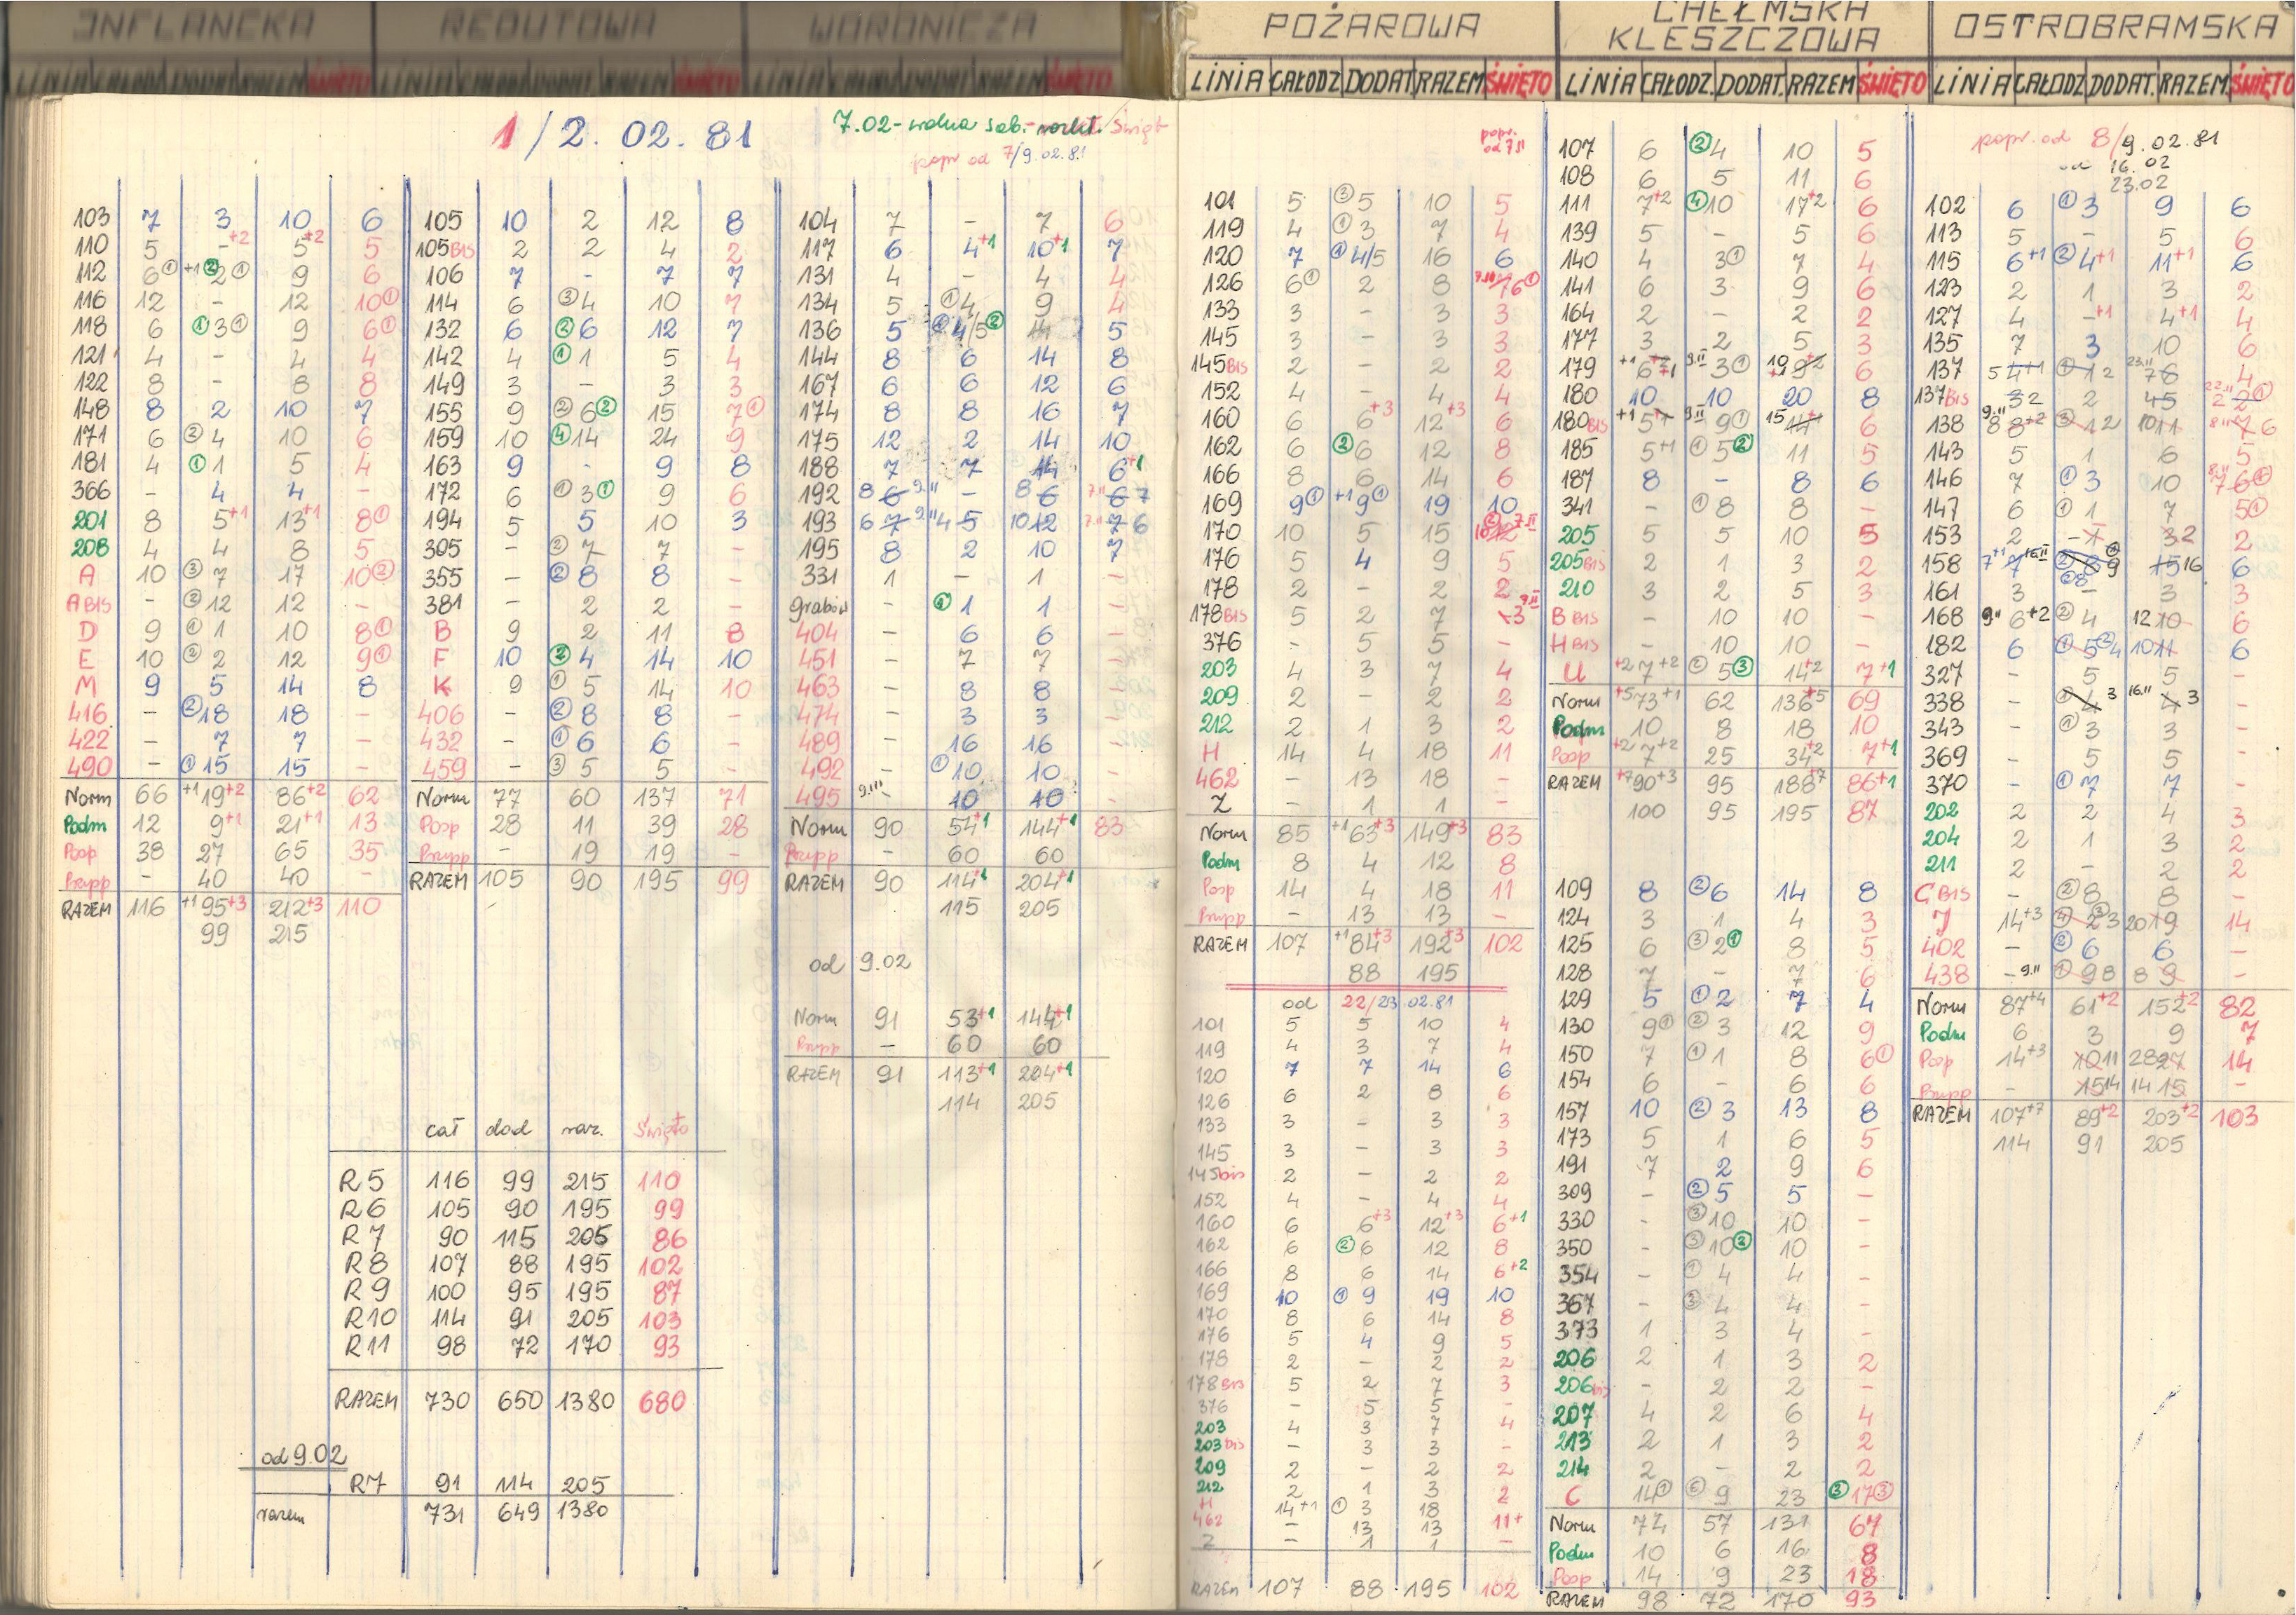 INFLANCKA
LINIA CAŁODZ. DODAT. RAZEM ŚWIĘTO
REDUTOWA
LINIA CAŁODZ. DODAT. RAZEM ŚWIĘTO
WORONICZA
LINIA CAŁODZ. DODAT. RAZEM ŚWIĘTO
POŻAROWA
LINIA CAŁODZ DODAT RAZEM ŚWIĘTO
CHEŁMSKA
KLESZCZOWA
LINIA CAŁODZ. DODAT. RAZEM ŚWIĘTO
OSTROBRAMSKA
LINIA CAŁODZ DODAT. RAZEM ŚWIĘTO
1/2.02.81
7.02-wolna sob.
popr od 7/9.02.81
103 7 3 10 6
110 5 -+2 5+2 5
112 6① +1②2① 9 6
116 12 - 12 10①
118 6 ①3① 9 6①
121 4 - 4 4
122 8 - 8 8
148 8 2 10 7
171 6 ②4 10 6
181 4 ①1 5 4
366 - 4 4 -
201 8 5+1 13+1 8①
208 4 4 8 5
A 10 ③7 17 10②
A BIS - ②12 12 -
D 9 ①1 10 8①
E 10 ②2 12 9①
M 9 5 14 8
416 - ②18 18 -
422 - 7 7 -
490 - ①15 15 -
Norm 66 +1 19+2 86+2 62
Podm 12 9+1 21+1 13
Posp 38 27 65 35
Prupp - 40 40 -
RAZEM 116 +1 95+3 212+3 110
99 215
105 10 2 12 8
105BIS 2 2 4 2
106 7 - 7 7
114 6 ③4 10 7
132 6 ②6 12 7
142 4 ①1 5 4
149 3 - 3 3
155 9 ②6② 15 7①
159 10 ④14 24 9
163 9 - 9 8
172 6 ①3① 9 6
194 5 5 10 3
305 - ②7 7 -
355 - ②8 8 -
381 - 2 2 -
B 9 2 11 8
F 10 ②4 14 10
K 9 ①5 14 10
406 - ②8 8 -
432 - ①6 6 -
459 - ③5 5 -
Norm 77 60 137 71
Posp 28 11 39 28
Prupp - 19 19 -
RAZEM 105 90 195 99
104 7 - 7 6
117 6 4+1 10+1 7
131 4 - 4 4
134 5 ①4 9 4
136 5 4/5②  5
144 8 6 14 8
167 6 6 12 6
174 8 8 16 7
175 12 2 14 10
188 7 7 14 6+1
192 8 6 9.II - 8 6 7.II 6 7
193 6 7 9.II 4 5 10 12 7.II 7 6
195 8 2 10 7
331 1 - 1 -
grabów - ①1 1 -
404 - 6 6 -
451 - 7 7 -
463 - 8 8 -
474 - 3 3 -
489 - 16 16 -
492 - ①10 10 -
495 - 10 10 -
Norm 90 54+1 144+1 83
Prupp - 60 60
RAZEM 90 114+1 204+1
115 205
od 9.02
Norm 91 53+1 144+1
Prupp - 60 60
RAZEM 91 113+1 204+1
114 205
cał dod raz. Święto
R5 116 99 215 110
R6 105 90 195 99
R7 90 115 205 86
R8 107 88 195 102
R9 100 95 195 87
R10 114 91 205 103
R11 98 72 170 93
RAZEM 730 650 1380 680
od 9.02
R7 91 114 205
razem 731 649 1380
popr.
od 7 II
101 5 ③5 10 5
119 4 ①3 7 4
120 7 ①4/5 16 6
126 6① 2 8 6①
133 3 - 3 3
145 3 - 3 3
145BIS 2 - 2 2
152 4 - 4 4
160 6 6+3 12+3 6
162 6 ②6 12 8
166 8 6 14 6
169 9① +1 9① 19 10
170 10 5 15
176 5 4 9 5
178 2 - 2 2
178BIS 5 2 7 3
376 - 5 5 -
203 4 3 7 4
209 2 - 2 2
212 2 1 3 2
H 14 4 18 11
462 - 13 18 -
Z - 1 1 -
Norm 85 +1 63+3 149+3 83
Podm 8 4 12 8
Posp 14 4 18 11
Prupp - 13 13 -
RAZEM 107 +1 84+3 192+3 102
88 195
od 22/23.02.81
101 5 5 10 4
119 4 3 7 4
120 7 7 14 6
126 6 2 8 6
133 3 - 3 3
145 3 - 3 3
145bis 2 - 2 2
152 4 - 4 4
160 6 6+3 12+3 6+1
162 6 ②6 12 8
166 8 6 14 6+2
169 10 ①9 19 10
170 8 6 14 8
176 5 4 9 5
178 2 - 2 2
178BIS 5 2 7 3
376 - 5 5 -
203 4 3 7 4
203bis - 3 3 -
209 2 - 2 2
212 2 1 3 2
H 14+1 ①3 18 11+
462 - 13 13 -
Z - 1 1 -
RAZEM 107 88 195 102
107 6 ②4 10 5
108 6 5 11 6
111 7+2 ④10 17+2 6
139 5 - 5 6
140 4 3① 7 4
141 6 3 9 6
164 2 - 2 2
177 3 2 5 3
179 +1 6 9.II 3① 6
180 10 10 20 8
180BIS +1 5 9.II 9① 15 6
185 5+1 ①5② 11 5
187 8 - 8 6
341 - ①8 8 -
205 5 5 10 5
205BIS 2 1 3 2
210 3 2 5 3
B BIS - 10 10 -
H BIS - 10 10 -
U +2 7+2 ②5③ 14+2 7+1
Norm +5 73+1 62 136+5 69
Podm 10 8 18 10
Posp +2 7+2 25 34+2 7+1
RAZEM +7 90+3 95 188+7 86+1
100 95 195 87
109 8 ②6 14 8
124 3 1 4 3
125 6 ③2① 8 5
128 7 - 7 6
129 5 ①2 7 4
130 9① ②3 12 9
150 7 ①1 8 6①
154 6 - 6 6
157 10 ②3 13 8
173 5 1 6 5
191 7 2 9 6
309 - ②5 5 -
330 - ③10 10 -
350 - ③10② 10 -
354 - ①4 4 -
367 - ③4 4 -
373 1 3 4 -
206 2 1 3 2
206bis - 2 2 -
207 4 2 6 4
213 2 1 3 2
214 2 - 2 2
C 14① ⑥9 23 ③17③
Norm 74 57 131 67
Podm 10 6 16 8
Posp 14 9 23 18
RAZEM 98 72 170 93
popr. od 8/9.02.81
od 16.02
23.02
102 6 ①3 9 6
113 5 - 5 6
115 6+1 ②4+1 11+1 6
123 2 1 3 2
127 4 -+1 4+1 4
135 7 3 10 6
137 5 4+1 ①1 2 23.II 7 6 4
137BIS 3 2 2 4 5
138 9.II 8 8+2 ③1 2 10 11 6
143 5 1 6 5
146 7 ①3 10
147 6 ①1 7 5①
153 2 - 1 3 2 2
158 7+1 16.II 8 9 15 16 6
161 3 - 3 3
168 6+2 ②4 12 10 6
182 6 ①5 4 10 11 6
327 - 5 5 -
338 - 4 3 16.II 4 3 -
343 - ①3 3 -
369 - 5 5 -
370 - ①7 7 -
202 2 2 4 3
204 2 1 3 2
211 2 - 2 2
C BIS - ②8 8 -
J 14+3 2 3 20 19 14
402 - ②6 6 -
438 - 9.II ①9 8 8 9 -
Norm 87+4 61+2 152+2 82
Podm 6 3 9 7
Posp 14+3 10 11 28 27 14
Prupp - 15 14 14 15 -
RAZEM 107+7 89+2 203+2 103
114 91 205